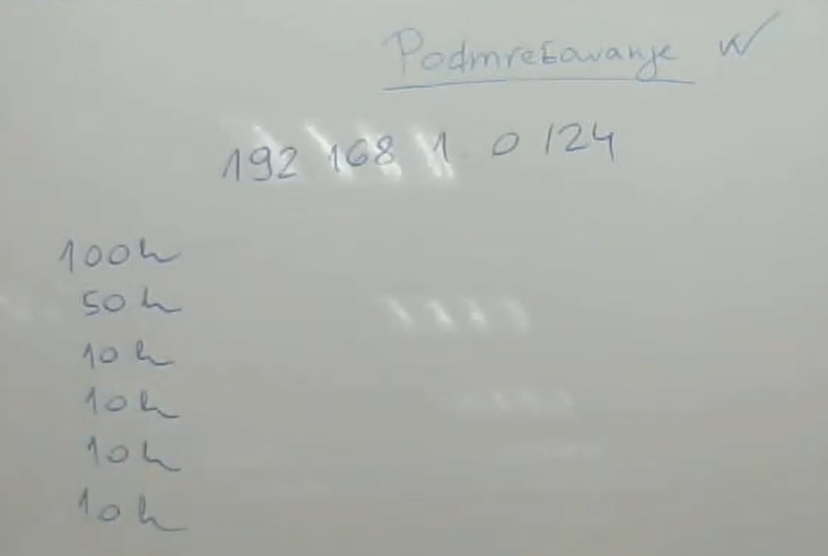 Podmreževanje
192 168 1. 0 /24
100h
50h
10h
10h
10h
10h